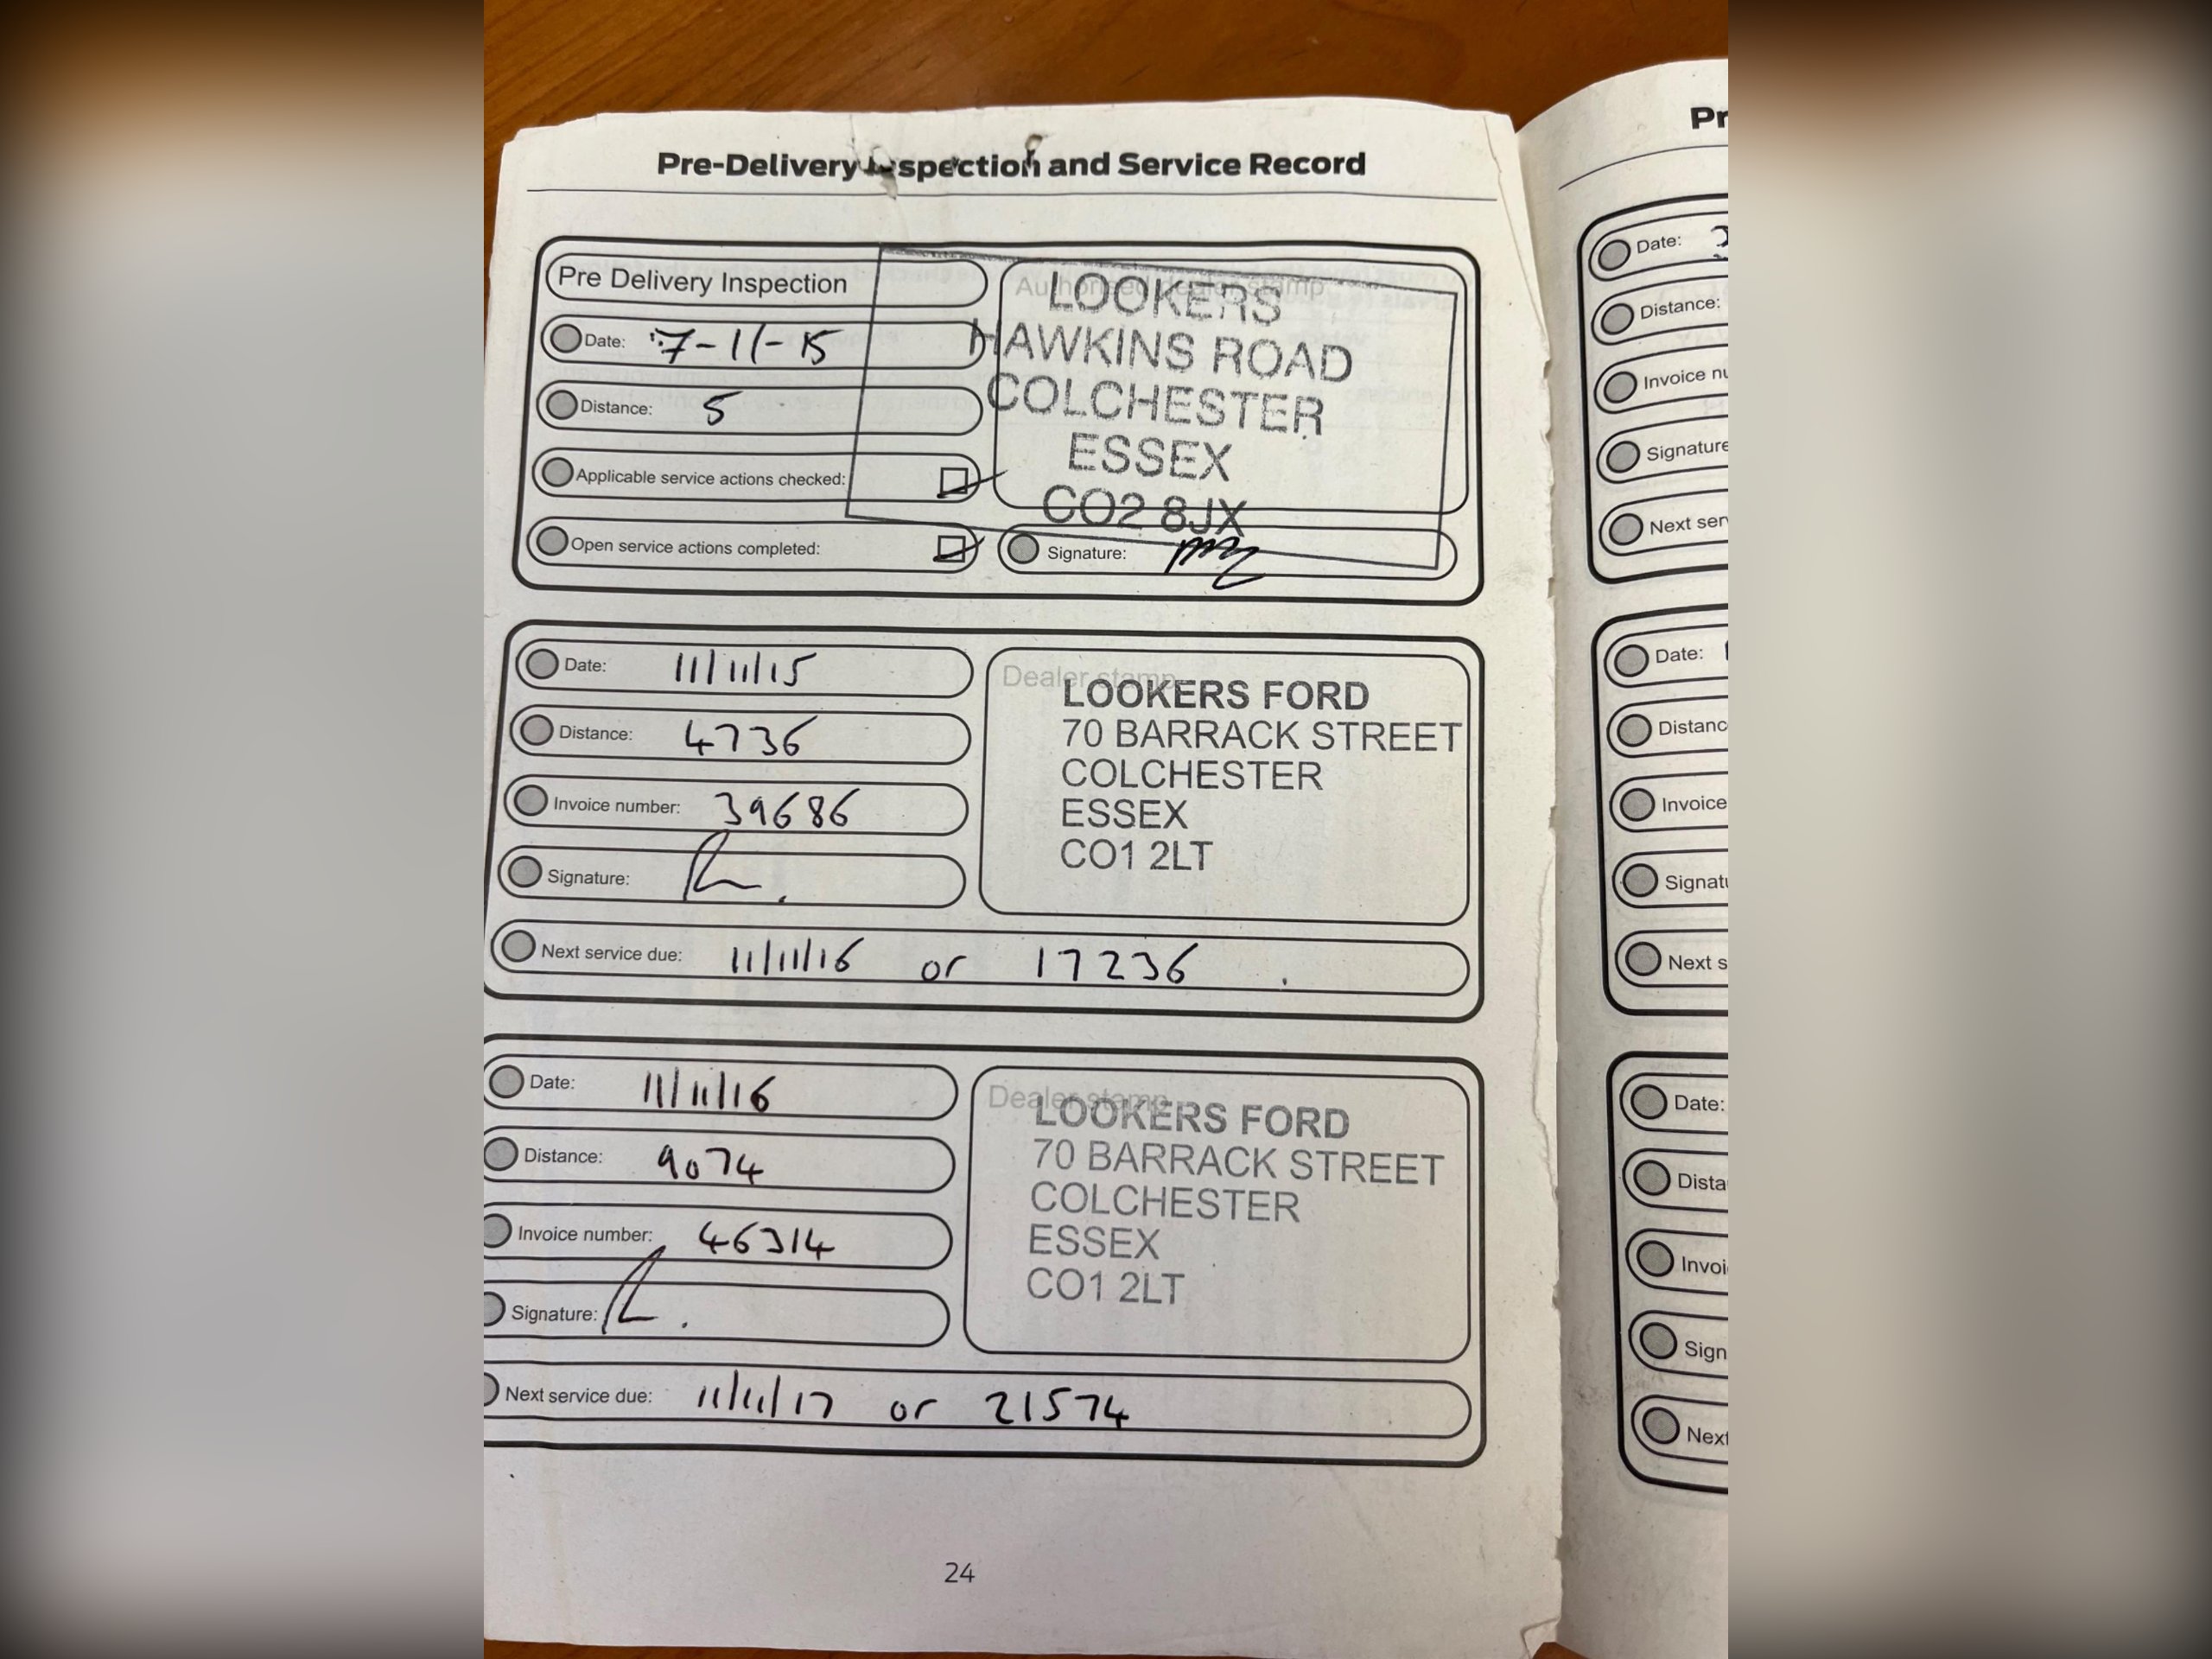 Pre-Delivery Inspection and Service Record
Pre Delivery Inspection
Date: 7-11-15
Distance: 5
Applicable service actions checked:
Open service actions completed:
Authorised dealer stamp
LOOKERS
HAWKINS ROAD
COLCHESTER
ESSEX
CO2 8JX
Signature:
Date: 11/11/15
Distance: 4736
Invoice number: 39686
Signature:
Dealer stamp
LOOKERS FORD
70 BARRACK STREET
COLCHESTER
ESSEX
CO1 2LT
Next service due: 11/11/16 or 17236
Date: 11/11/16
Distance: 9074
Invoice number: 46314
Signature:
Dealer stamp
LOOKERS FORD
70 BARRACK STREET
COLCHESTER
ESSEX
CO1 2LT
Next service due: 11/11/17 or 21574
24
Pr
Date:
Distance:
Invoice nu
Signature
Next ser
Date:
Distanc
Invoice
Signatu
Next s
Date:
Dista
Invoi
Sign
Next